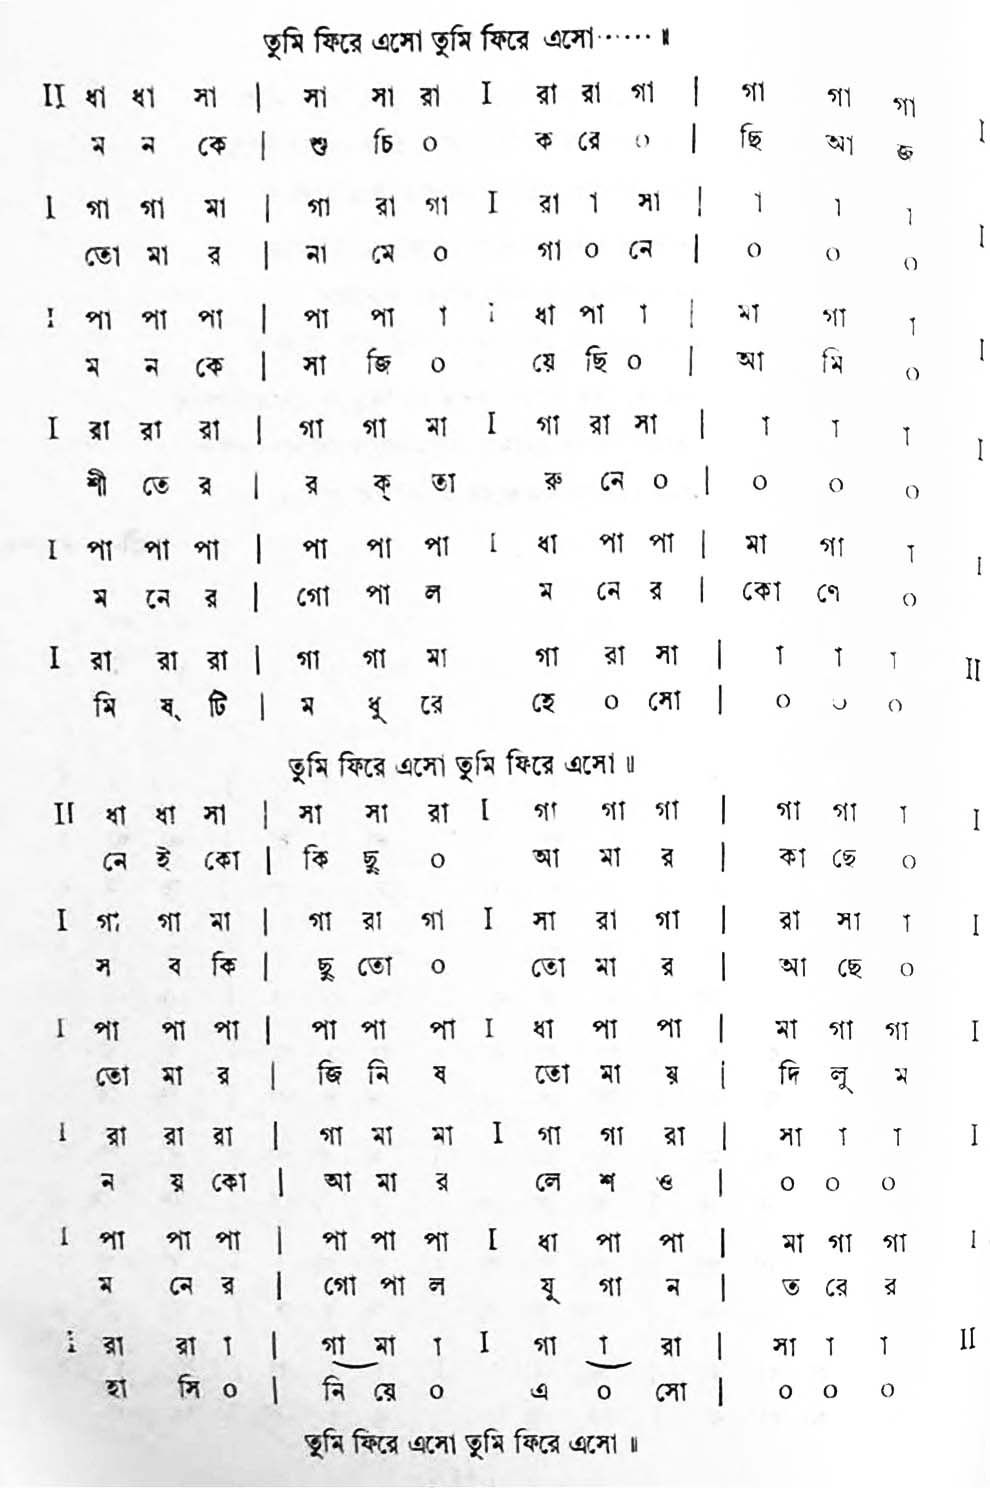 তুমি ফিরে এসো তুমি ফিরে এসো……॥
II ধা ধা সা | সা সা রা I রা রা গা | গা গা গা I
ম ন কে | শু চি ০ ক রে ০ | ছি আ জ
I গা গা মা | গা রা গা I রা া সা | া া া I
তো মা র | না মে ০ গা ০ নে | ০ ০ ০
I পা পা পা | পা পা া I ধা পা া | মা গা া I
ম ন কে | সা জি ০ য়ে ছি ০ | আ মি ০
I রা রা রা | গা গা মা I গা রা সা | া া া I
শী তে র | র ক্ তা রু নে ০ | ০ ০ ০
I পা পা পা | পা পা পা I ধা পা পা | মা গা া I
ম নে র | গো পা ল ম নে র | কো ণে ০
I রা রা রা | গা গা মা গা রা সা | া া া II
মি ষ্ টি | ম ধু রে হে ০ সো | ০ ০ ০
তুমি ফিরে এসো তুমি ফিরে এসো॥
II ধা ধা সা | সা সা রা I গা গা গা | গা গা া I
নে ই কো | কি ছু ০ আ মা র | কা ছে ০
I গা গা মা | গা রা গা I সা রা গা | রা সা া I
স ব কি | ছু তো ০ তো মা র | আ ছে ০
I পা পা পা | পা পা পা I ধা পা পা | মা গা গা I
তো মা র | জি নি ষ তো মা য় | দি লু ম
I রা রা রা | গা মা মা I গা গা রা | সা া া I
ন য় কো | আ মা র লে শ ও | ০ ০ ০
I পা পা পা | পা পা পা I ধা পা পা | মা গা গা I
ম নে র | গো পা ল যু গা ন | ত রে র
I রা রা া | গা মা া I গা া রা | সা া া II
হা সি ০ | নি য়ে ০ এ ০ সো | ০ ০ ০
তুমি ফিরে এসো তুমি ফিরে এসো॥